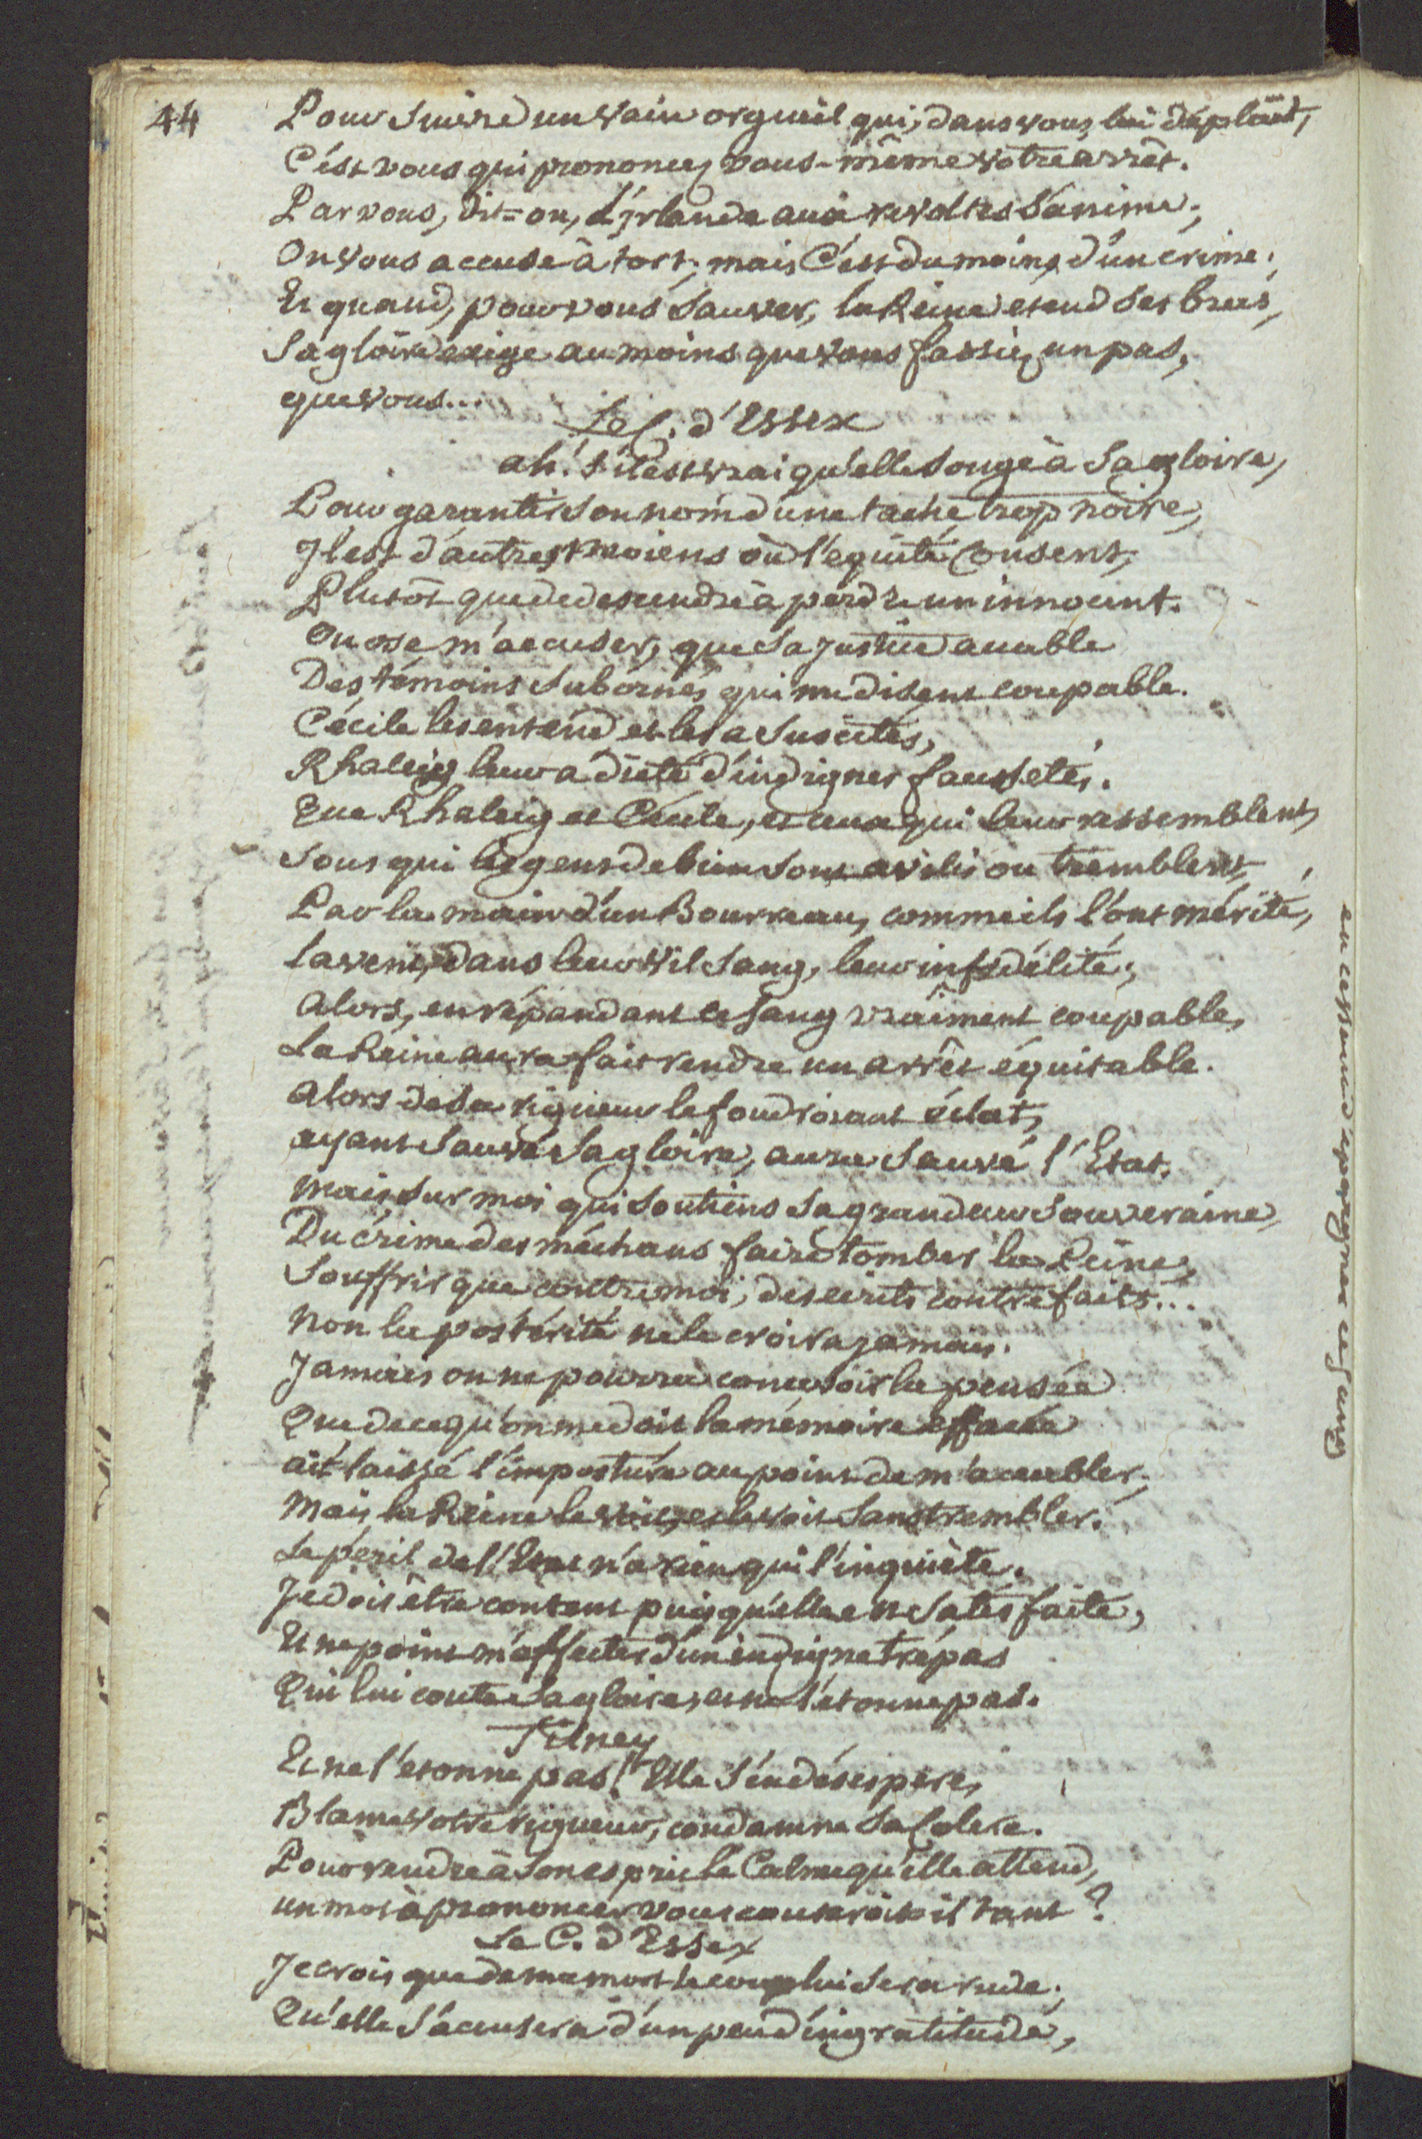 44
Pour suivre un vain orgueil qui, dans vous, lui déplait,
C'est vous qui prononcez vous-même votre arrêt.
Par vous, dit-on, L'jrlande aux revoltes s'anime;
On vous accuse à tort; mais C'est du moins d'un crime;
Et quand, pour vous sauver, la Reine etend ses bras,
Sa gloire exige au moins que vous fassiez un pas,
que vous...
Le C. d'Essex
ah! s'il est vrai qu'elle songe à Sa gloire,
Pour garantir son nom d'une tache trop noire,
Il est d'autres moiens où l'equité Consent,
Plutôt que de descendre à perdre un innocent.
On ose m'accuser, que Sa justice accable
Des témoins subornés qui me disent coupable.
Cécile les entend et les a suscités,
Rhaleig leur a dicté d'indignes faussetés.
Que Rhaleig et Cécile, et ceux qui leur ressemblent,
Sous qui les gens de bien sont avilis ou tremblent,
Par la main d'un Bourreau, comme ils l'ont mérité,
lavent, dans leur vil Sang, leur infidélité;
alors, en répandant ce sang vraiment coupable,
La Reine aura fait rendre un arrêt équitable.
alors de sa rigueur le foudroiant éclat,
ayant sauvé sa gloire, aura sauvé l'Etat.
mais sur moi qui soutiens sa grandeur souveraine,
Du crime des méchans faire tomber la Peine,
Souffrir que contre moi, des ecrits contrefaits...
non la postérité ne le croira jamais.
Jamais on ne pourra concevoir la pensée
Que de ce qu'on me doit la mémoire effacée
ait laissé l'imposture au point de m'accabler;
Mais la Reine le voit, et le voit sans trembler.
Le péril de l'Etat n'a rien qui l'inquiète.
Je dois être content puisqu'elle est satisfaite,
Et ne point m'affecter d'un indigne trépas
Qui lui coute sa gloire, et ne l'étonne pas.
Tilney
Et ne l'etonne pas! Elle s'en désespere,
Blame votre rigueur, condamne sa Colere.
Pour rendre à son esprit le Calme qu'elle attend,
un mot à prononcer vous couteroit-il tant?
Le C. d'Essex
Je crois que de ma mort le coup lui sera rude;
Qu'elle s'accusera d'un peu d'ingratitude,